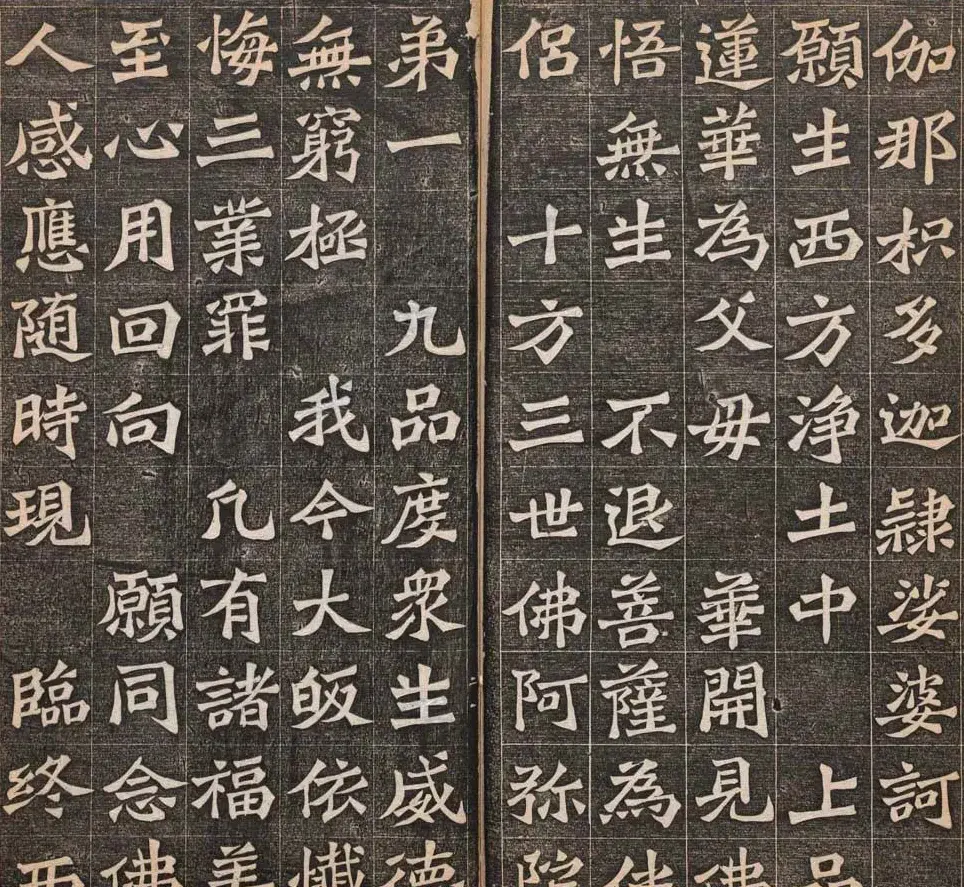 伽那枳多迦隷娑婆訶
願生西方净土中 上品
蓮華為父毋 華開見佛
悟無生 不退菩薩為伴
侣 十方三世佛 阿弥陀
弟一 九品度衆生 威德
無窮極 我今大皈依 懺
悔三業罪 凢有諸福善
至心用回向 願同念佛
人感應随時現 臨终西